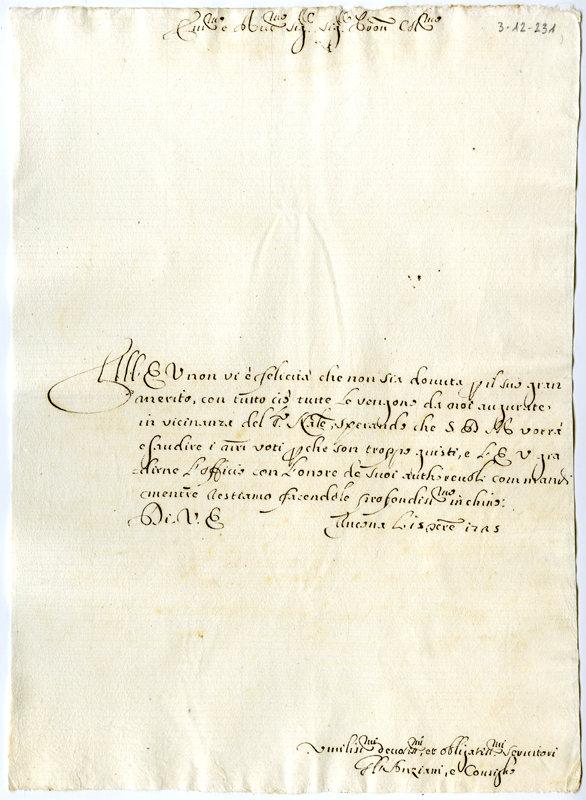 Em.mo e Rev.mo Sig.r Sig.r Pron Col.mo
3-12-231
All E V non vi è felicità che non sia dovuta p il suo gran
merito, con tutto ciò tutte le vengono da noi augurate
in vicinanza del S. Nat.le, sperando che S D M vorrà
esaudire i nri voti pche son troppo giusti, e l'E V gra
dirne l'officio con l'onore de suoi autorevoli commandi
mentre restiamo facendole profondiss.mo inchino.
Di V. E
Ancona li 15 Xbre 1725
Umilis.mi devotis.mi et obligatis.mi Servitori
Gli Anziani, e Consiglio